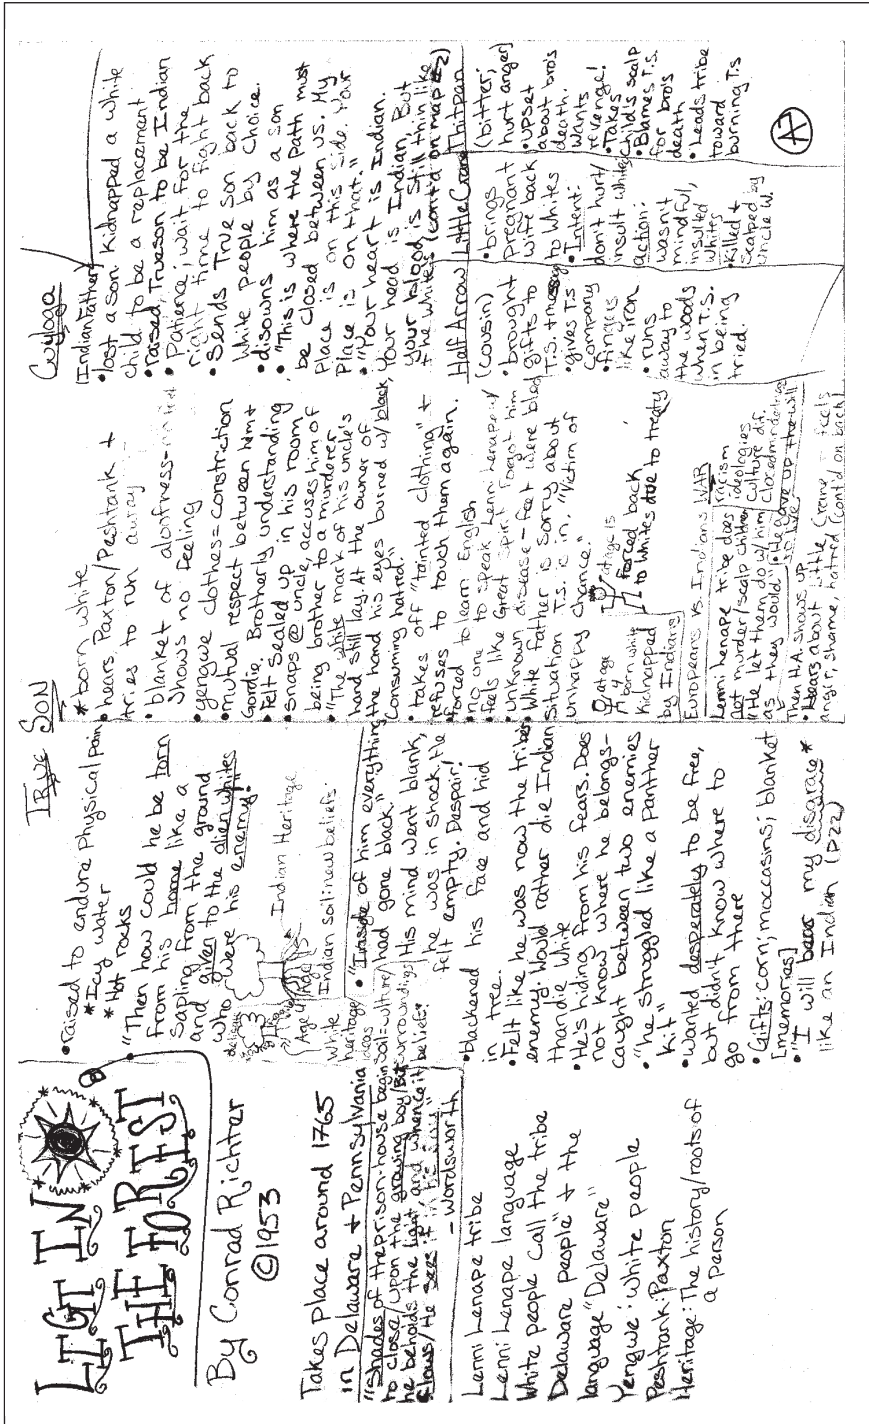 LIGHT IN
THE FOREST
By Conrad Richter
©1953
Takes place around 1765
in Delaware + Pennsylvania
"Shades of the prison-house begin
to close/Upon the growing boy/But
he beholds the light and whence it
flows/He sees it in his joy"
-Wordsworth
Lenni Lenape tribe
Lenni Lenape language
White people call the tribe
Delaware people" + the
language "Delaware"
Yengwe: White people
Peshtank: Paxton
Heritage: The history/roots of
a person
TRUE SON
• raised to endure Physical pain
* Icy water
* Hot rocks
• "Then how could he be torn
from his home like a
sapling from the ground
and given to the alien whites
who were his enemy."
Indian Heritage
Age 4
White
heritage
Indian soil: new beliefs
ideas
soil=culture/
surroundings/
beliefs
• "Inside of him everything
had gone black."
His mind went blank,
he was in shock. He
felt empty. Despair!
• blackened his face and hid
in tree.
• Felt like he was now the tribe's
enemy. Would rather die Indian
than die White
• He's hiding from his fears. Does
not know where he belongs-
caught between two enemies
• "he struggled like a panther
kit"
• Wanted desperately to be free,
but didn't know where to
go from there
• Gifts: corn; moccasins; blanket
[memories]
• "I will bear my disgrace *
like an Indian (p22)
* born white
• hears Paxton/Peshtank +
tries to run away
• blanket of aloofness-
shows no feeling
• yengwe clothes = constriction
• mutual respect between him +
Gordie. Brotherly understanding
• Felt Sealed up in his room
• snaps @ uncle, accuses him of
being brother to a murderer
• "The white mark of his uncle's
hand still lay. At the owner of
the hand his eyes burned w/ black,
Consuming hatred."
• takes off "tainted clothing" +
refuses to touch them again.
• forced to learn English
• no one to speak Lenni Lenape w/
• feels like Great Spirit Forgot him
• unknown disease - feet were bled
• White father is sorry about
situation T.S. is in. "Victim of
unhappy chance."
at age
4
born white
kidnapped
by Indians
at age 15
forced back
to Whites due to treaty
Europeans vs. Indians WAR
Lenni Lenape tribe does
not murder/scalp children
racism
ideologies
culture dif.
closedmindedness
"He let them do w/ him
as they would"
• He gave up the will
to live
Then H.A. shows up
• Hears about Little Crane - feels
anger, shame, hatred (cont'd on back)
Cuyloga
(Indian Father)
• lost a son, kidnapped a white
child to be a replacement
• raised Trueson to be Indian
• Patience; wait for the
right time to fight back
• Sends True Son back to
white people by choice.
• disowns him as a son
• "This is where the path must
be closed between us. My
Place is on this side. Your
Place is on that."
• "Your heart is Indian.
Your head is Indian. But
your blood is still thin like
the Whites (cont'd on map #2)
Half Arrow
(cousin)
• brought
gifts to
T.S. + message
• gives T.S
company
• fingers
like iron
• runs
away to
the woods
when T.S.
in being
tried.
Little Crane
• brings
pregnant
wife back
to Whites
• Intent:
don't hurt/
insult white
action:
wasn't
mindful,
insulted
whites
• Killed +
scalped by
uncle W.
Thitpan
(bitter,
hurt anger)
• upset
about bro's
death.
wants
revenge!
• Takes
child's scalp
• Blames T.S.
for bro's
death
• Leads tribe
toward
burning T.S
A7